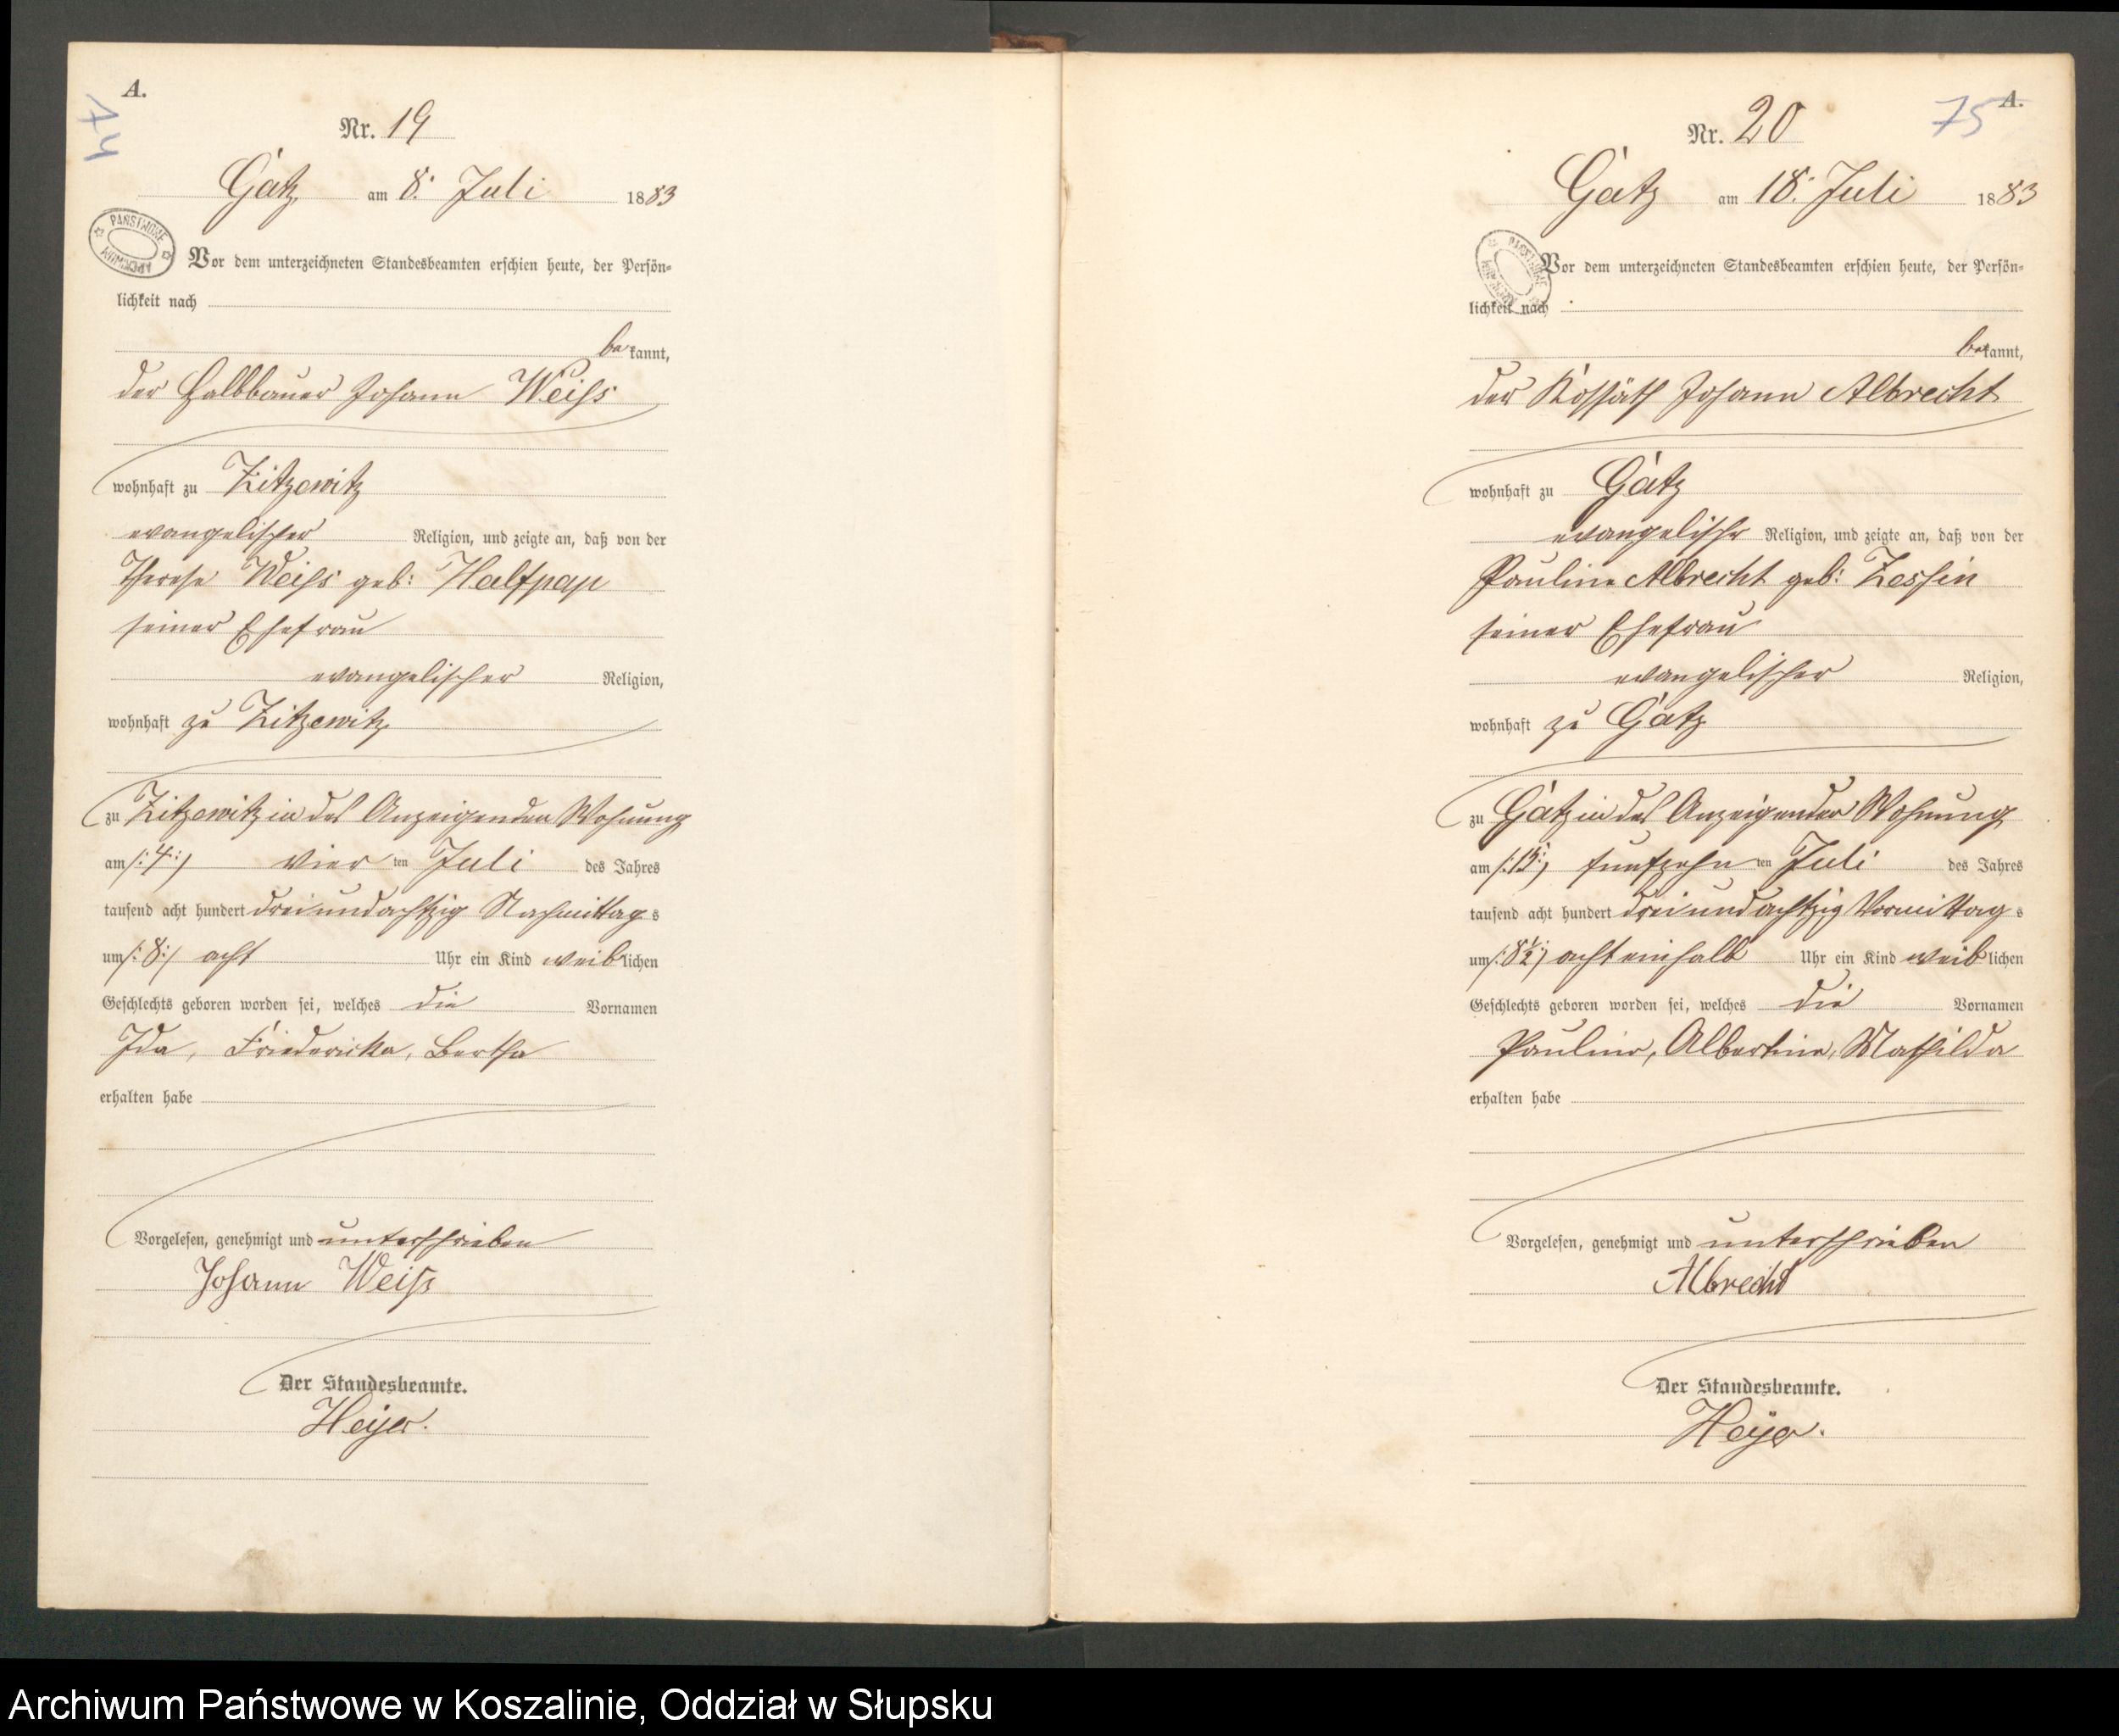 A.
74
Nr. 19
Gatz am 8. Juli 1883
PAŃSTWOWE ARCHIWUM
Vor dem unterzeichneten Standesbeamten erschien heute, der Persön-
lichkeit nach
bekannt,
der Halbbauer Johann Weiss
wohnhaft zu Zitzewitz
evangelischer Religion, und zeigte an, daß von der
Therese Weiss geb: Halfpap
seiner Ehefrau
evangelischer Religion,
wohnhaft zu Zitzewitz
zu Zitzewitz in des Anzeigenden Wohnung
am /:4:/ vier ten Juli des Jahres
tausend acht hundert dreiundachtzig Nachmittags
um /:8:/ acht Uhr ein Kind weiblichen
Geschlechts geboren worden sei, welches die Vornamen
Ida, Friedericka, Bertha
erhalten habe
Vorgelesen, genehmigt und unterschrieben
Johann Weiss
Der Standesbeamte.
Heyer.
75
A.
Nr. 20
Gatz am 18. Juli 1883
PAŃSTWOWE ARCHIWUM
Vor dem unterzeichneten Standesbeamten erschien heute, der Persön-
lichkeit nach
bekannt,
der Kossäth Johann Albrecht
wohnhaft zu Gatz
evangelischr Religion, und zeigte an, daß von der
Pauline Albrecht geb: Zessin
seiner Ehefrau
evangelischer Religion,
wohnhaft zu Gatz
zu Gatz in des Anzeigenden Wohnung
am /:15:/ funfzehn ten Juli des Jahres
tausend acht hundert dreiundachtzig Vormittags
um /:8½:/ achteinhalb Uhr ein Kind weiblichen
Geschlechts geboren worden sei, welches die Vornamen
Pauline, Albertine, Mathilda
erhalten habe
Vorgelesen, genehmigt und unterschrieben
Albrecht
Der Standesbeamte.
Heyer.
Archiwum Państwowe w Koszalinie, Oddział w Słupsku